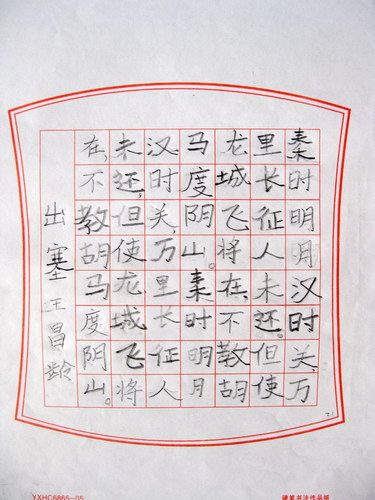 秦时明月汉时关,万
里长征人未还,但使
龙城飞将在,不教胡
马度阴山。秦时明月
汉时关,万里长征人
未还,但使龙城飞将
在,不教胡马度阴山。
出塞 王昌龄
YXHC6865-05
硬笔书法作品纸